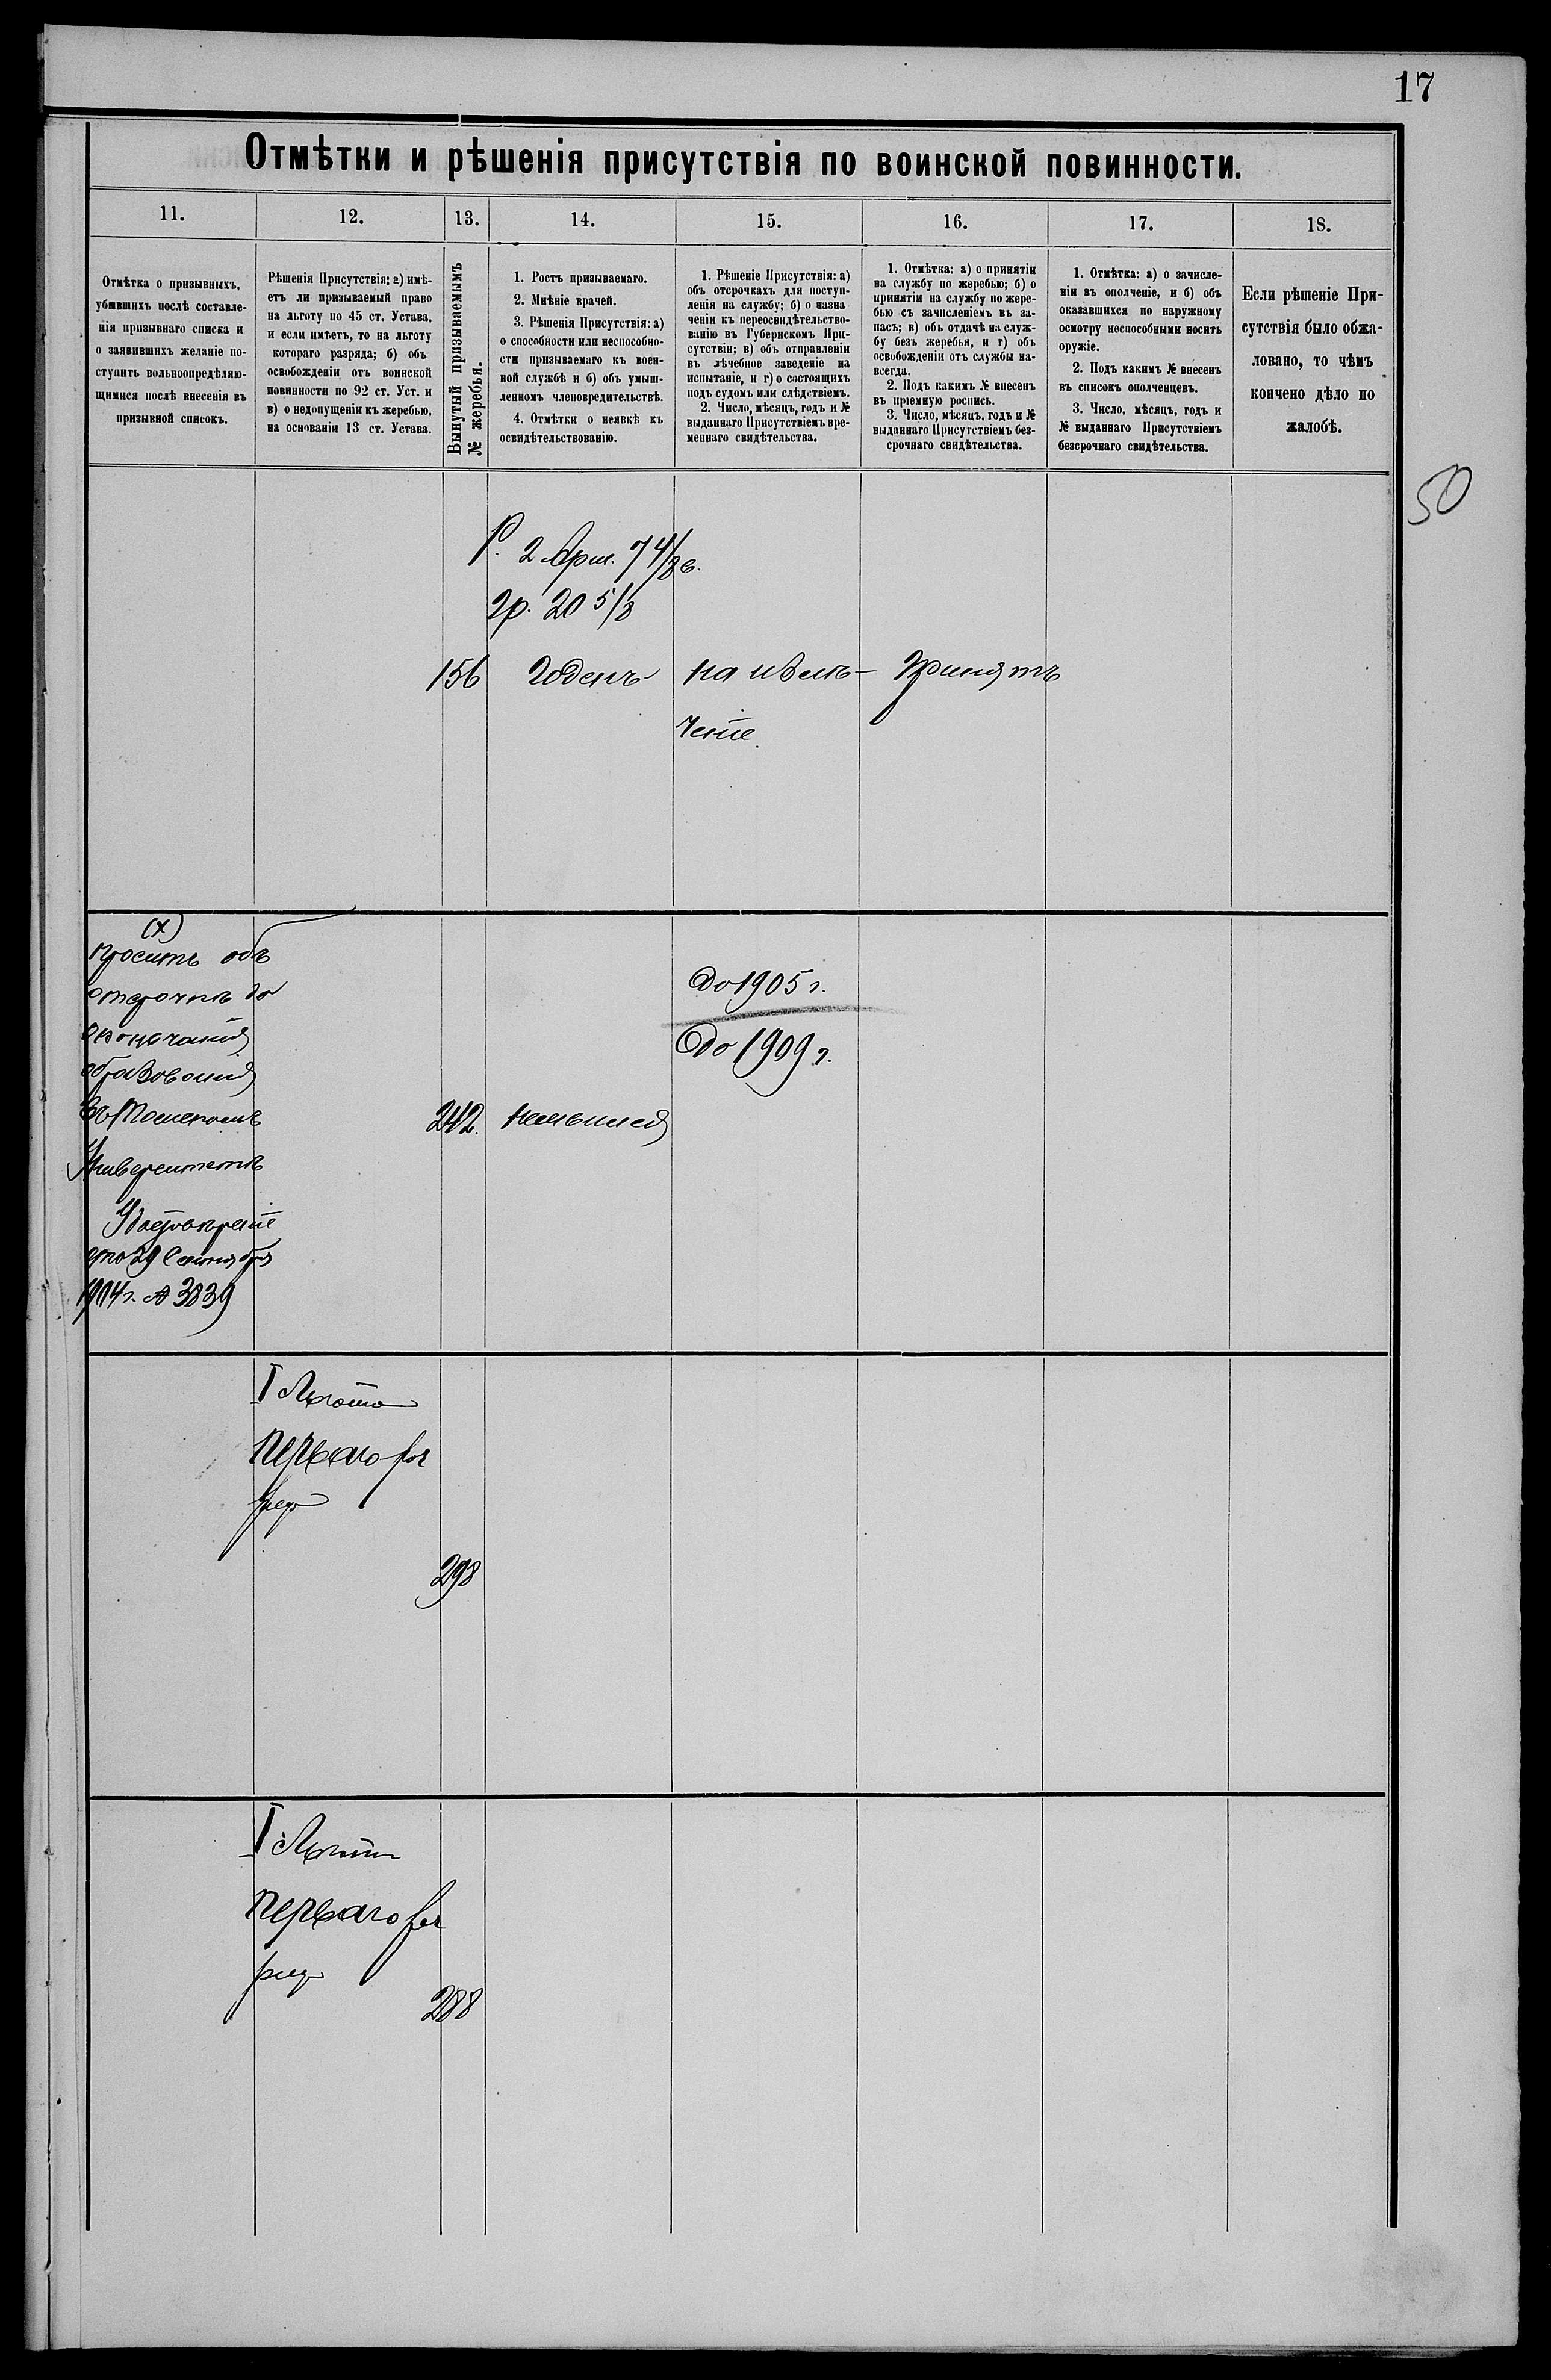 17
Отмѣтки и рѣшенія присутствія по воинской повинности.
11.
12.
13.
14.
15.
16.
17.
18.
Отмѣтка о призывныхъ,
убывшихъ послѣ составле-
нія призывнаго списка и
о заявившихъ желаніе по-
ступить вольноопредѣляю-
щимися послѣ внесенія въ
призывной списокъ.
Рѣшенія Присутствія: а) имѣ-
етъ ли призываемый право
на льготу по 45 ст. Устава,
и если имѣетъ, то на льготу
котораго разряда; б) объ
освобожденіи отъ воинской
повинности по 92 ст. Уст. и
в) о недопущеніи къ жеребью,
на основаніи 13 ст. Устава.
Вынутый призываемымъ
№ жеребья.
1. Ростъ призываемаго.
2. Мнѣніе врачей.
3. Рѣшенія Присутствія: а)
о способности или неспособно-
сти призываемаго къ воен-
ной службѣ и б) объ умыш-
ленномъ членовредительствѣ.
4. Отмѣтки о неявкѣ къ
освидѣтельствованію.
1. Рѣшеніе Присутствія: а)
объ отсрочкахъ для поступ-
ленія на службу; б) о назна
ченіи къ переосвидѣтельство-
ванію въ Губернскомъ При-
сутствіи; в) объ отправленіи
въ лѣчебное заведеніе на
испытаніе, и г) о состоящихъ
подъ судомъ или слѣдствіемъ.
2. Число, мѣсяцъ, годъ и №
выданнаго Присутствіемъ вре-
меннаго свидѣтельства.
1. Отмѣтка: а) о принятіи
на службу по жеребью; б) о
принятіи на службу по жере-
бью съ зачисленіемъ въ за-
пасъ; в) объ отдачѣ на служ-
бу безъ жеребья, и г) объ
освобожденіи отъ службы на-
всегда.
2. Подъ какимъ № внесенъ
въ пріемную роспись.
3. Число, мѣсяцъ, годъ и №
выданнаго Присутствіемъ без-
срочнаго свидѣтельства.
1. Отмѣтка: а) о зачисле-
ніи въ ополченіе, и б) объ
оказавшихся по наружному
осмотру неспособными носить
оружіе.
2. Подъ какимъ № внесенъ
въ списокъ ополченцевъ.
3. Число, мѣсяцъ, годъ и
№ выданнаго Присутствіемъ
безсрочнаго свидѣтельства.
Если рѣшеніе При-
сутствія было обжа-
ловано, то чѣмъ
кончено дѣло по
жалобѣ.
50
Р. 2 Арш. 7 4/8 в.
гр. 20 5/8
156 Годенъ
на излѣ-
ченіе
Принятъ
(х)
проситъ объ
отсрочкѣ до
окончанія
образованія
въ Томскомъ
Университетѣ
Удостовѣреніе
отъ 29 Сентября
1904 г. № 3839
242. неявился
До 1905 г.
До 1909 г.
I Льгота
перваго раз
ряда
298
I Льгота
перваго раз
ряда
288